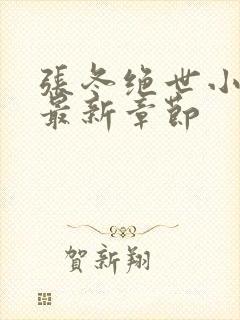 張冬绝世小
最新章節
賀新翔